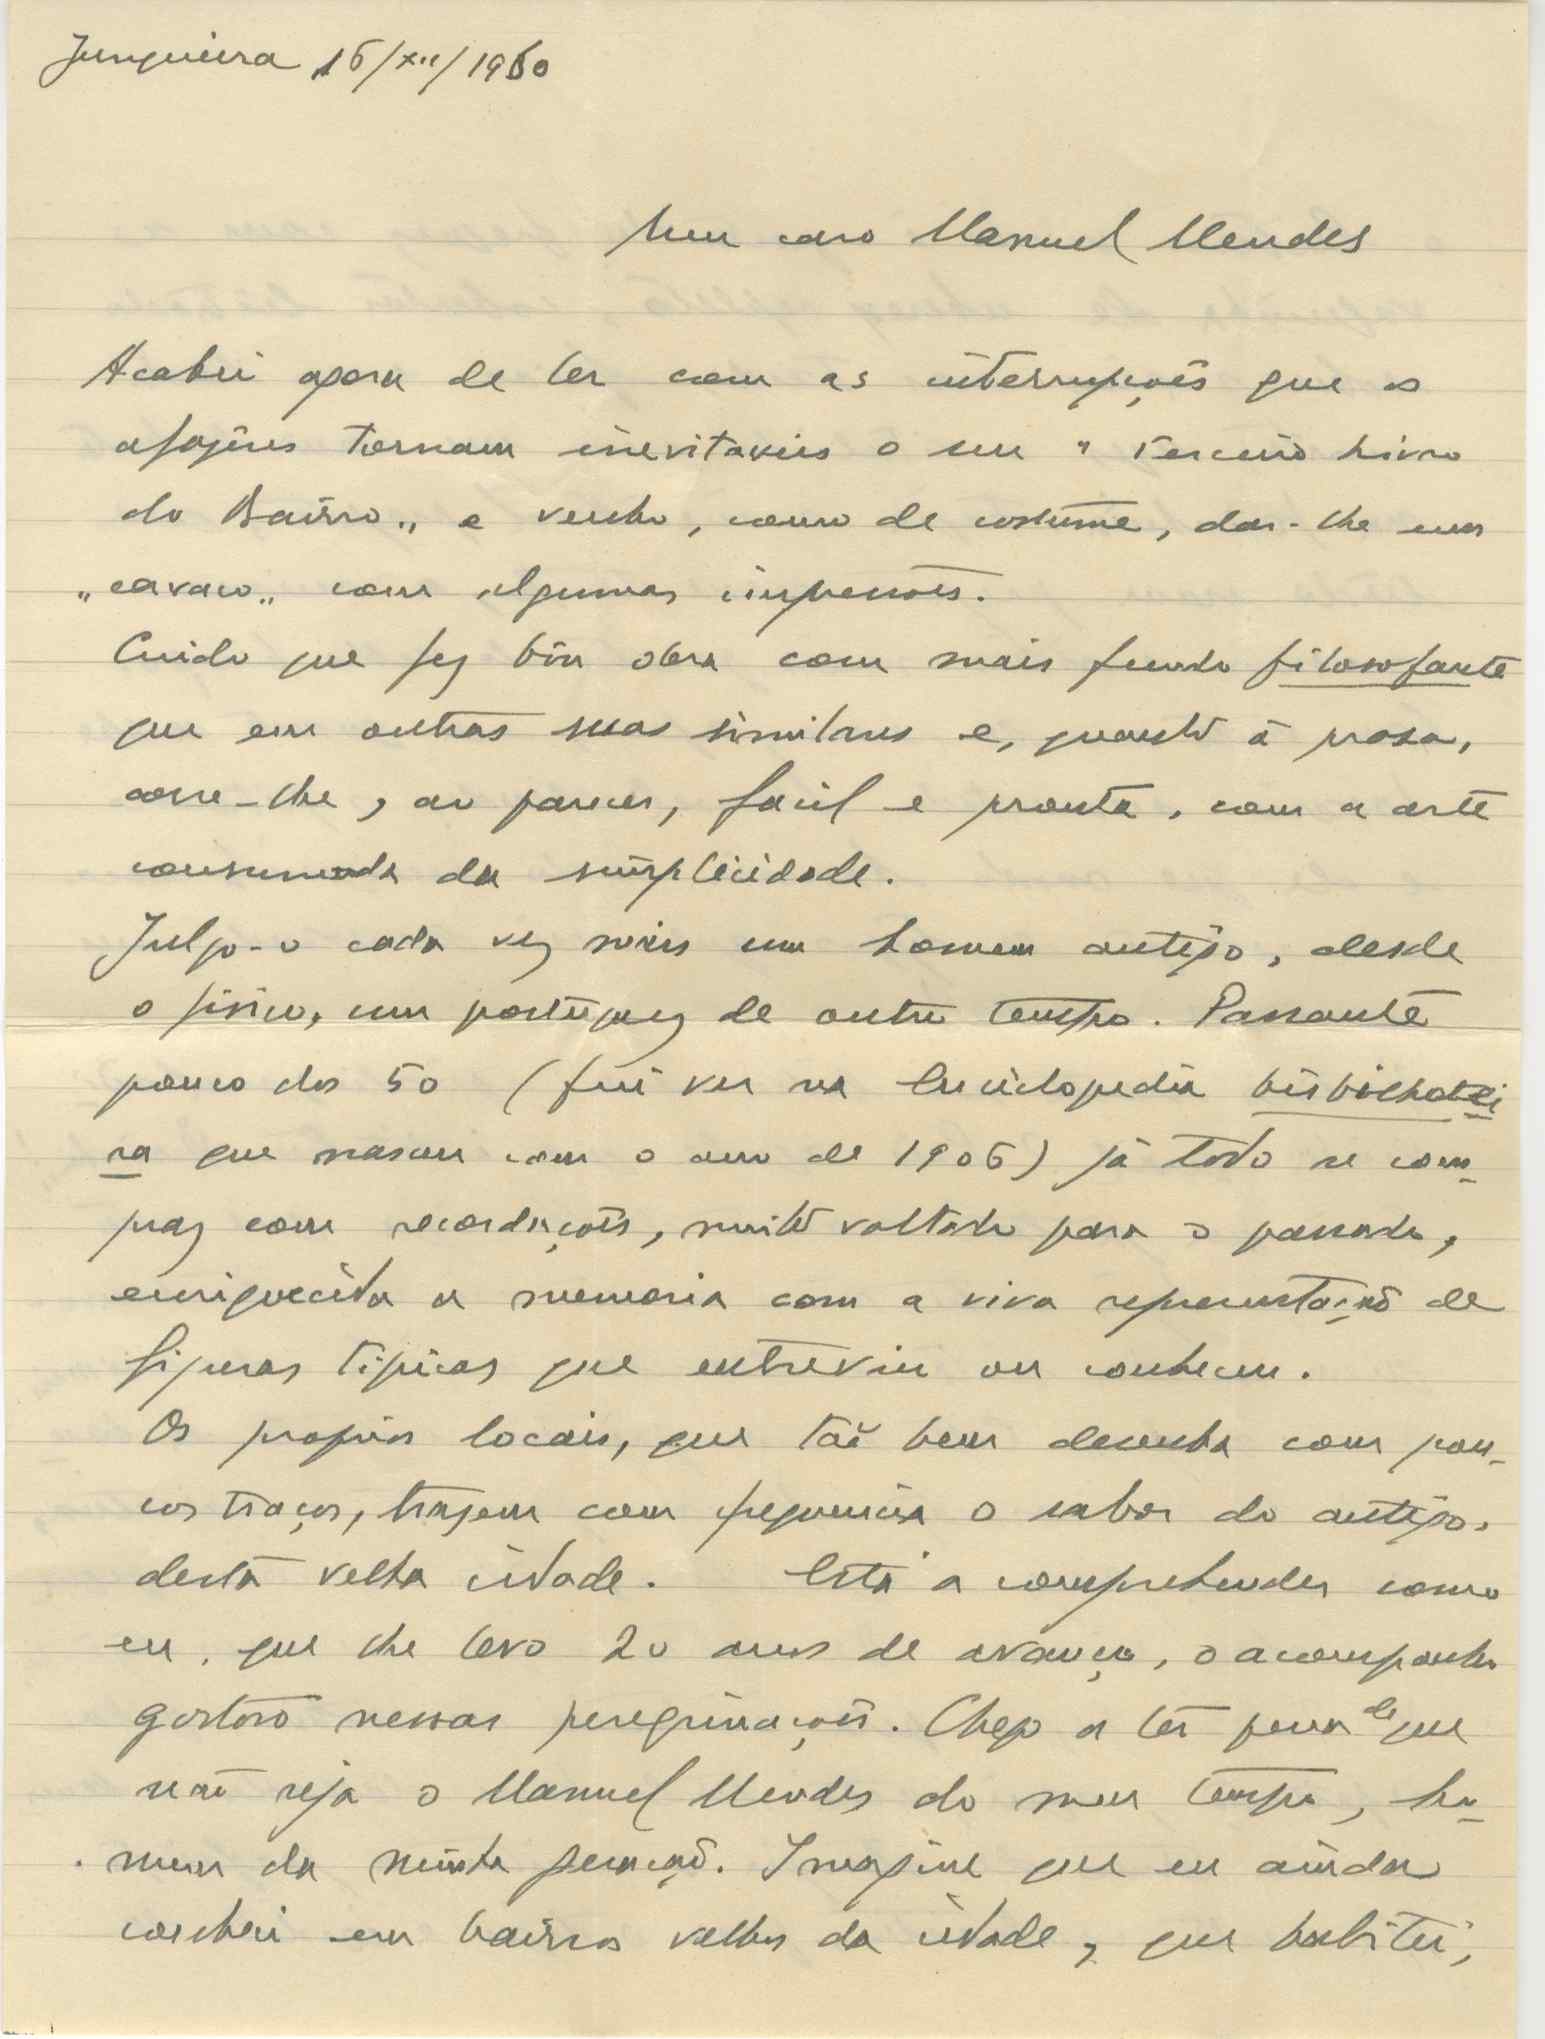 Junqueira 16/XII/1960
Meu caro Manuel Mendes
Acabei agora de ler com as interrupções que os
afazeres tornam inevitaveis o seu "Terceiro Livro
do Bairro" e venho, como de costume, dar-lhe um
"cavaco" com algumas impressões.
Cuido que fez bôa obra com mais fundo filosofante
que em outras suas similares e, quanto á prosa,
corre-lhe, ao parecer, facil e pronta, com a arte
consumada da simplicidade.
Julgo-o cada vez mais um homem antigo, desde
o fisico, um portuguez de outro tempo. Passante
pouco dos 50 (fui ver na Enciclopedia bisbilhotei
ra que nasceu com o ano de 1906) já todo se com-
praz com recordações, muito voltado para o passado,
enriquecida a memoria com a viva representação de
figuras tipicas que entreviu ou conheceu.
Os proprios locais, que tão bem desenha com pou-
cos traços, trazem com frequencia o sabor do antigo,
desta velha cidade. Está a comprehender como
eu, que lhe levo 20 anos de avanço, o acompanho
gostoso nessas peregrinações. Chego a ter pena de que
não seja o Manuel Mendes do meu tempo, ho-
mem da minha geração. Imagine que eu ainda
coscheri em bairros velhos da cidade, que habitei,